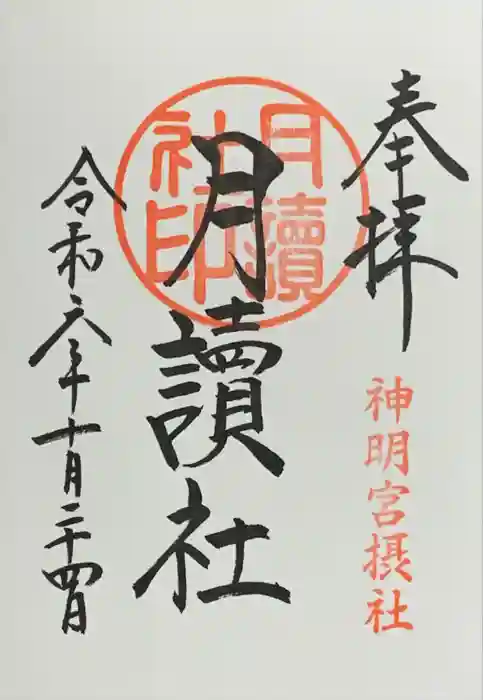 奉拝
神明宮摂社
月讀社
月讀社印
令和六年十月二十四日